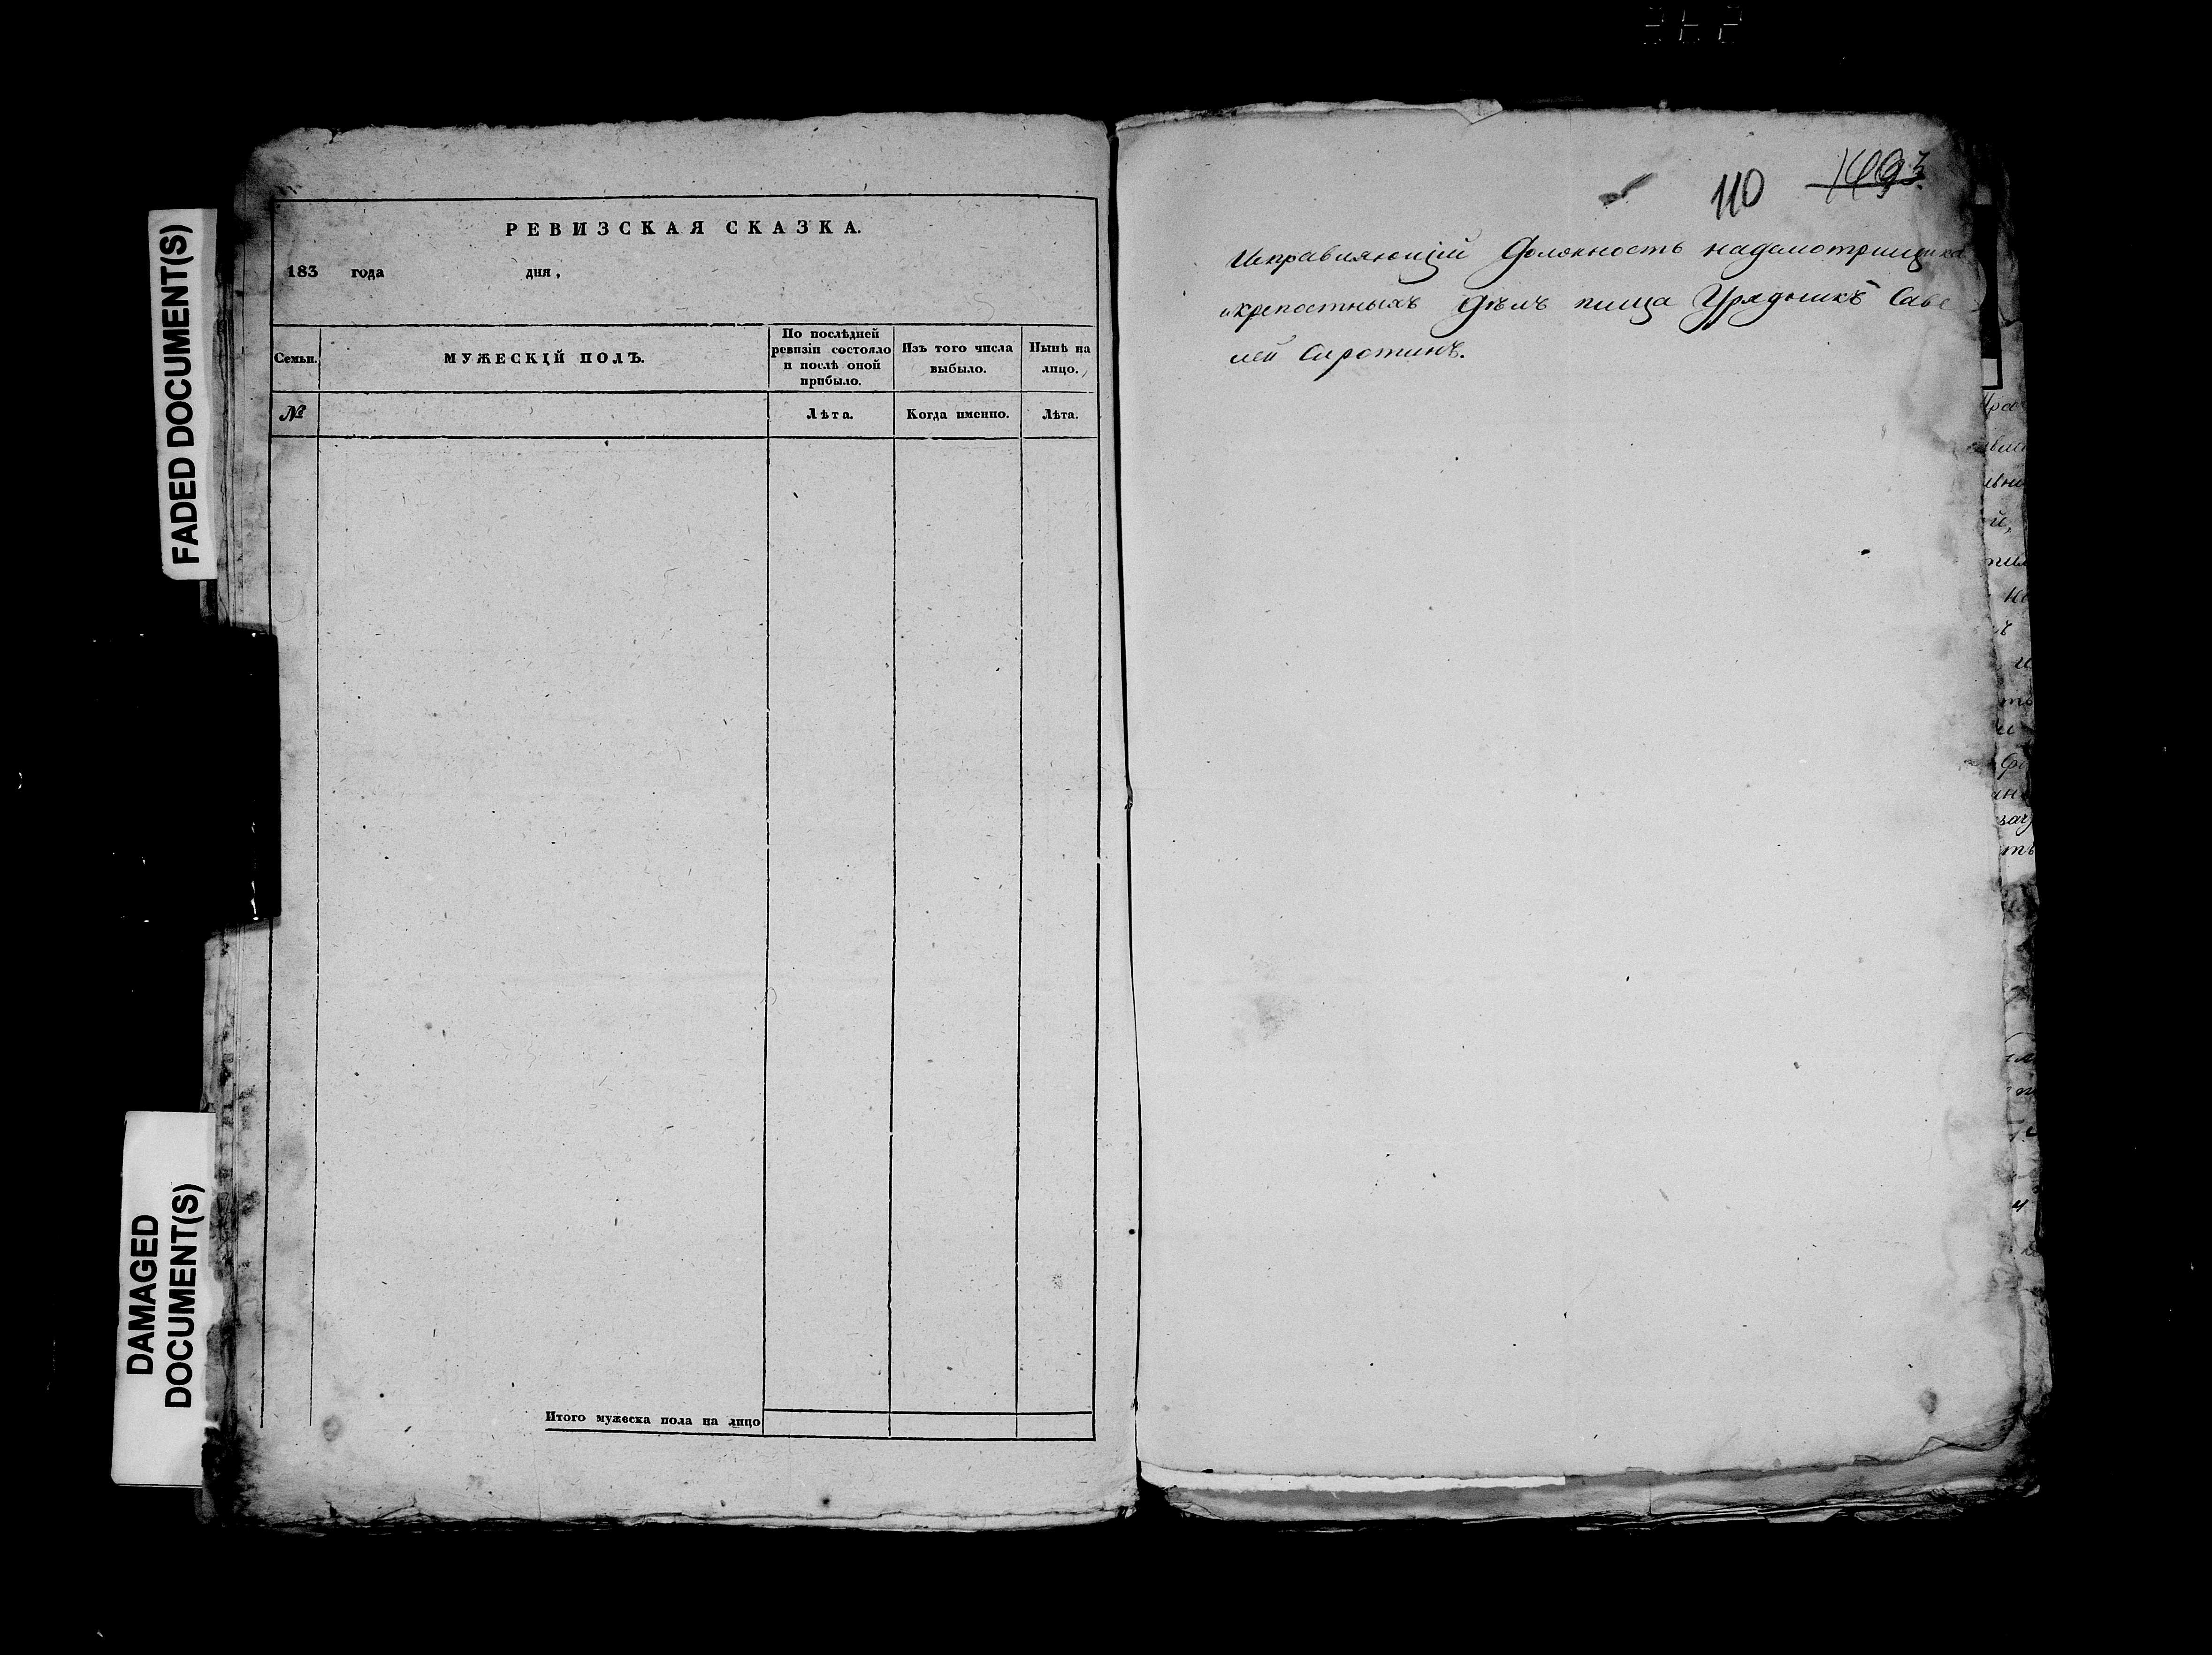 FADED DOCUMENT(S)
DAMAGED
DOCUMENT(S)
РЕВИЗСКАЯ СКАЗКА.
183 года дня,
Семьи.
МУЖЕСКІЙ ПОЛЪ.
По послѣдней
ревизіи состояло
и послѣ оной
прибыло.
Изъ того числа
выбыло.
Нынѣ на
лицо.
№
Лѣта.
Когда именно.
Лѣта.
Итого мужеска пола на лицо
110
Исправляющій Должность надсмотрщика
икрепостныхъ дѣлъ писца Урядникъ Саве
лей Сиротинъ.